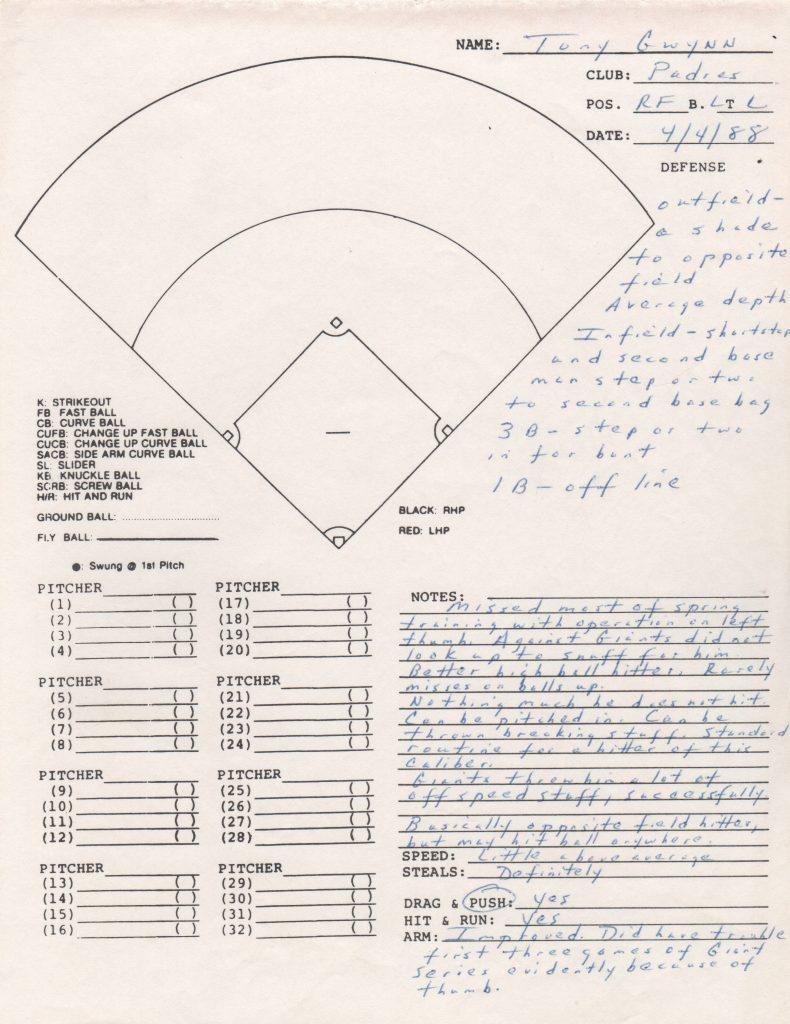 NAME: Tony Gwynn
CLUB: Padres
POS. RF B. L T L
DATE: 4/4/88
DEFENSE
outfield-
a shade
to opposite
field
Average depth
Infield - shortstop
and second base
man step or two
to second base bag
3B - step or two
in for bunt
1B - off line
K: STRIKEOUT
FB FAST BALL
CB: CURVE BALL
CUFB: CHANGE UP FAST BALL
CUCB: CHANGE UP CURVE BALL
SACB: SIDE ARM CURVE BALL
SL: SLIDER
KB KNUCKLE BALL
SCRB: SCREW BALL
H/R: HIT AND RUN
GROUND BALL:
FLY BALL:
BLACK: RHP
RED: LHP
●: Swung @ 1st Pitch
PITCHER
(1) ( )
(2) ( )
(3) ( )
(4) ( )
PITCHER
(5) ( )
(6) ( )
(7) ( )
(8) ( )
PITCHER
(9) ( )
(10) ( )
(11) ( )
(12) ( )
PITCHER
(13) ( )
(14) ( )
(15) ( )
(16) ( )
PITCHER
(17) ( )
(18) ( )
(19) ( )
(20) ( )
PITCHER
(21) ( )
(22) ( )
(23) ( )
(24) ( )
PITCHER
(25) ( )
(26) ( )
(27) ( )
(28) ( )
PITCHER
(29) ( )
(30) ( )
(31) ( )
(32) ( )
NOTES:
Missed most of spring
training with operation on left
thumb. Against Giants did not
look up to snuff for him.
Better high ball hitter. Rarely
misses on balls up.
Nothing much he does not hit.
Can be pitched in. Can be
thrown breaking stuff. Standard
routine for a hitter of this
caliber.
Giants threw him a lot of
off speed stuff, successfully.
Basically opposite field hitter,
but may hit ball anywhere.
SPEED: Little above average
STEALS: Definitely
DRAG & PUSH: Yes
HIT & RUN: Yes
ARM: Improved. Did have trouble
first three games of Giant
series evidently because of
thumb.